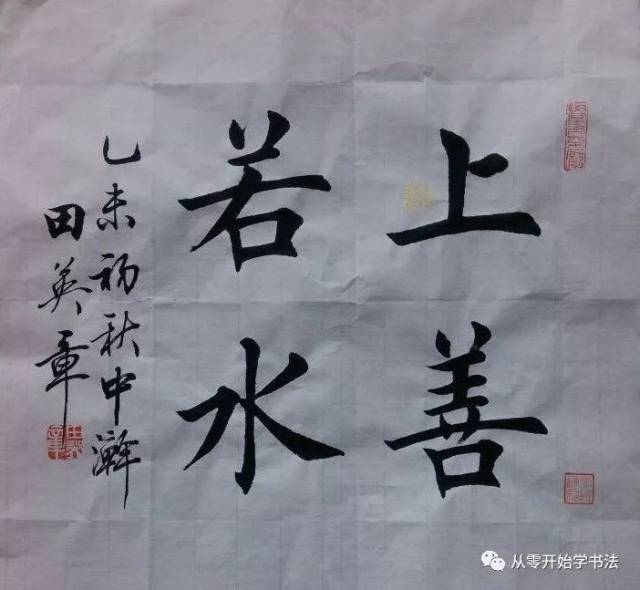 上善
若水
乙未初秋中澣
田英章
从零开始学书法